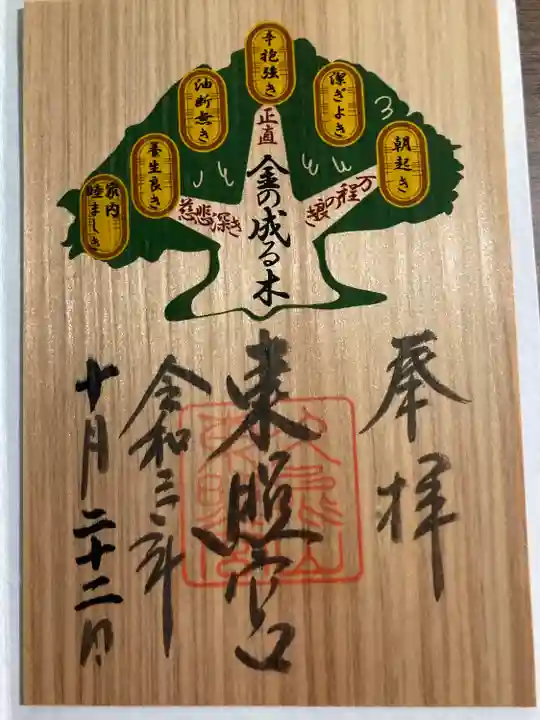 朝起き
潔ぎよき
辛抱強き
油断無き
養生良き
家内
睦ましき
万程の
よき
正直
慈悲深き
金の成る木
奉拝
東照宮
令和三年
十月二十二日